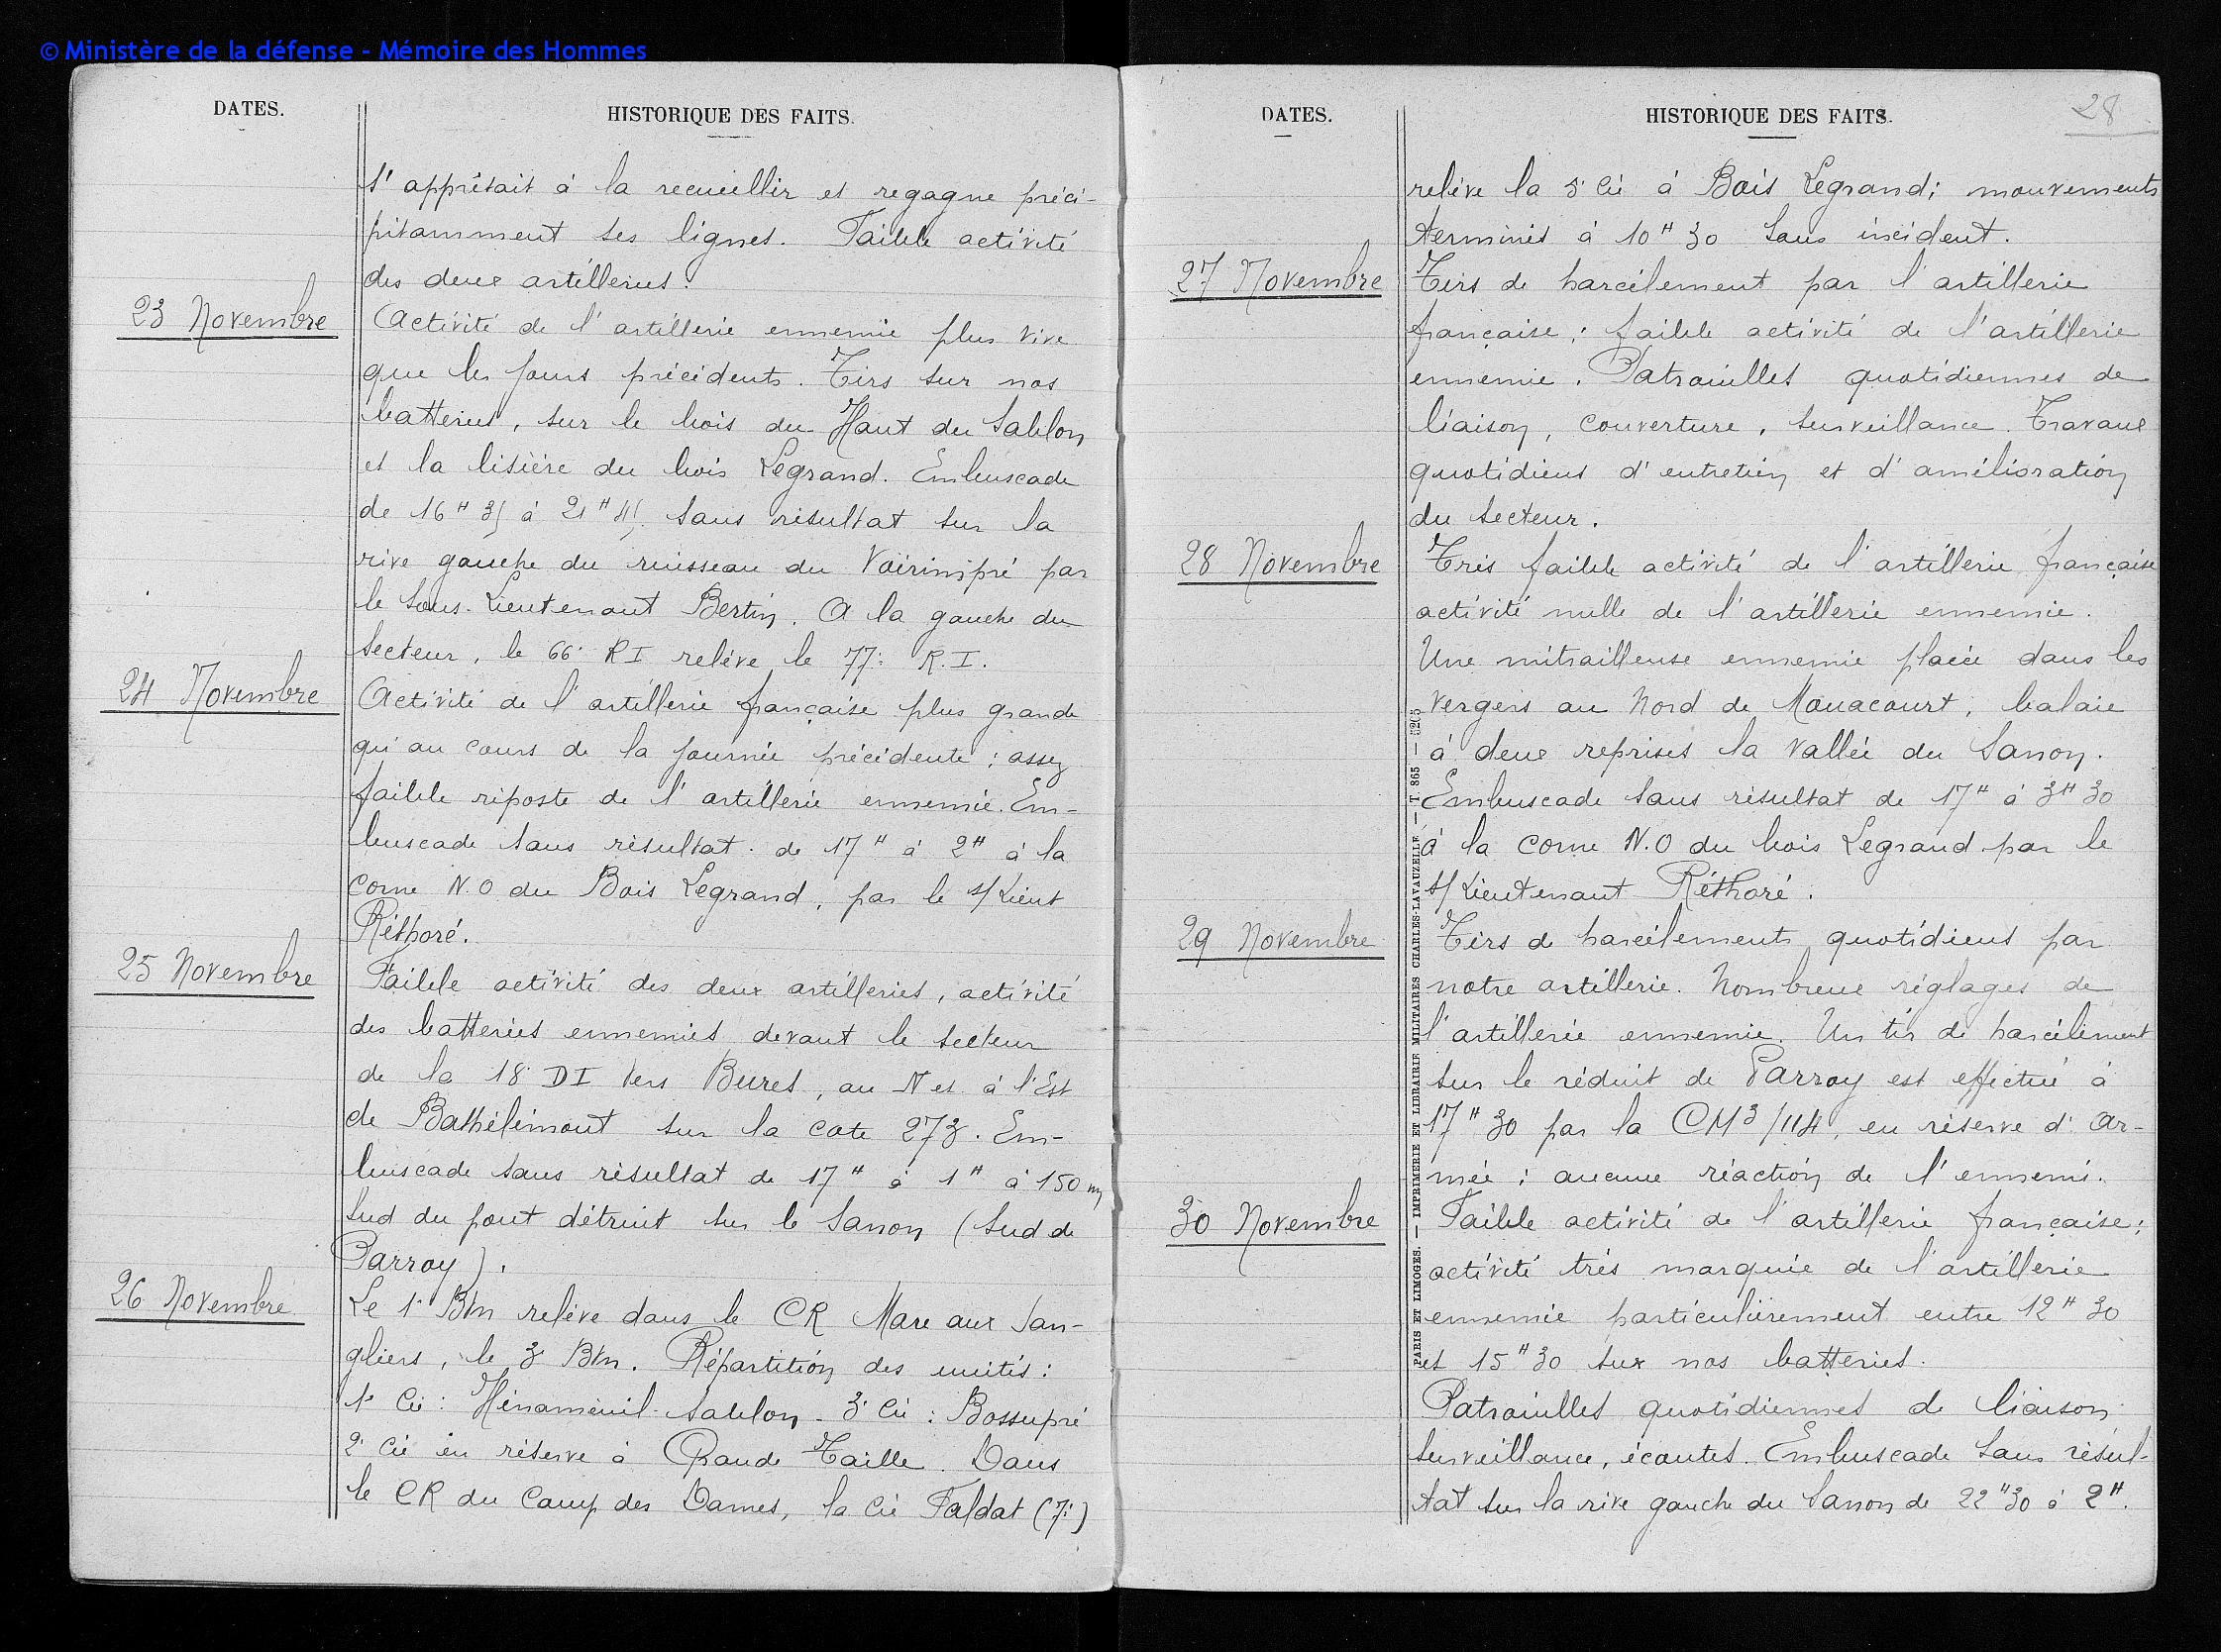 © Ministère de la défense - Mémoire des Hommes
DATES.
HISTORIQUE DES FAITS.
s'apprêtait à la recueillir et regagne préci-
pitamment ses lignes. Faible activité
des deux artilleries.
23 Novembre
Activité de l'artillerie ennemie plus vive
que les jours précédents. Tirs sur nos
batteries, sur le bois du Haut du Sablon
et la lisière du bois Legrand. Embuscade
de 16H 35 à 21H 45 sans résultat sur la
rive gauche du ruisseau du Voirimpré par
le Sous-Lieutenant Bertin. A la gauche du
secteur, le 66e RI relève le 77e R.I.
24 Novembre
Activité de l'artillerie française plus grande
qu'au cours de la journée précédente; assez
faible riposte de l'artillerie ennemie. Em-
buscade sans résultat de 17H à 2H à la
corne N.O du Bois Legrand, par le s/Lieut
Réthoré.
25 Novembre
Faible activité des deux artilleries, activité
des batteries ennemies devant le secteur
de la 18e DI vers Bures, au N et à l'Est
de Bathélémont sur la cote 273. Em-
buscade sans résultat de 17H à 1H à 150m
Sud du pont détruit sur le Sanon (Sud de
Parroy).
26 Novembre
Le 1e Btn relève dans le CR Mare aux San-
gliers, le 3e Btn. Répartition des unités:
1e Cie: Hénaménil-Sablon - 3e Cie: Bossupré
2e Cie en réserve à Grande Taille. Dans
le CR du Camp des Dames, la Cie Faldat (7e)
DATES.
HISTORIQUE DES FAITS.
28
relève la 5e Cie à Bois Legrand; mouvements
terminés à 10H 30 sans incident.
27 Novembre
Tirs de harcèlement par l'artillerie
française; faible activité de l'artillerie
ennemie. Patrouilles quotidiennes de
liaison, couverture, surveillance. Travaux
quotidiens d'entretien et d'amélioration
du secteur.
28 Novembre
Très faible activité de l'artillerie française
activité nulle de l'artillerie ennemie.
Une mitrailleuse ennemie placée dans les
vergers au Nord de Mouacourt, balaie
à deux reprises la vallée du Sanon.
Embuscade sans résultat de 17H à 3H 30
à la corne N.O du bois Legrand par le
s/Lieutenant Réthoré.
29 Novembre
Tirs de harcèlements quotidiens par
notre artillerie. Nombreux réglages de
l'artillerie ennemie. Un tir de harcèlement
sur le réduit de Parroy est effectué à
17H 30 par la CM3/114, en réserve d'Ar-
mée; aucune réaction de l'ennemi.
30 Novembre
Faible activité de l'artillerie française;
activité très marquée de l'artillerie
ennemie particulièrement entre 12H 30
et 15H 30 sur nos batteries.
Patrouilles quotidiennes de liaison
surveillance, écoutes. Embuscade sans résul-
tat sur la rive gauche du Sanon de 22H30 à 2H.
PARIS ET LIMOGES. — IMPRIMERIE ET LIBRAIRIE MILITAIRES CHARLES-LAVAUZELLE — T 865 — 5205